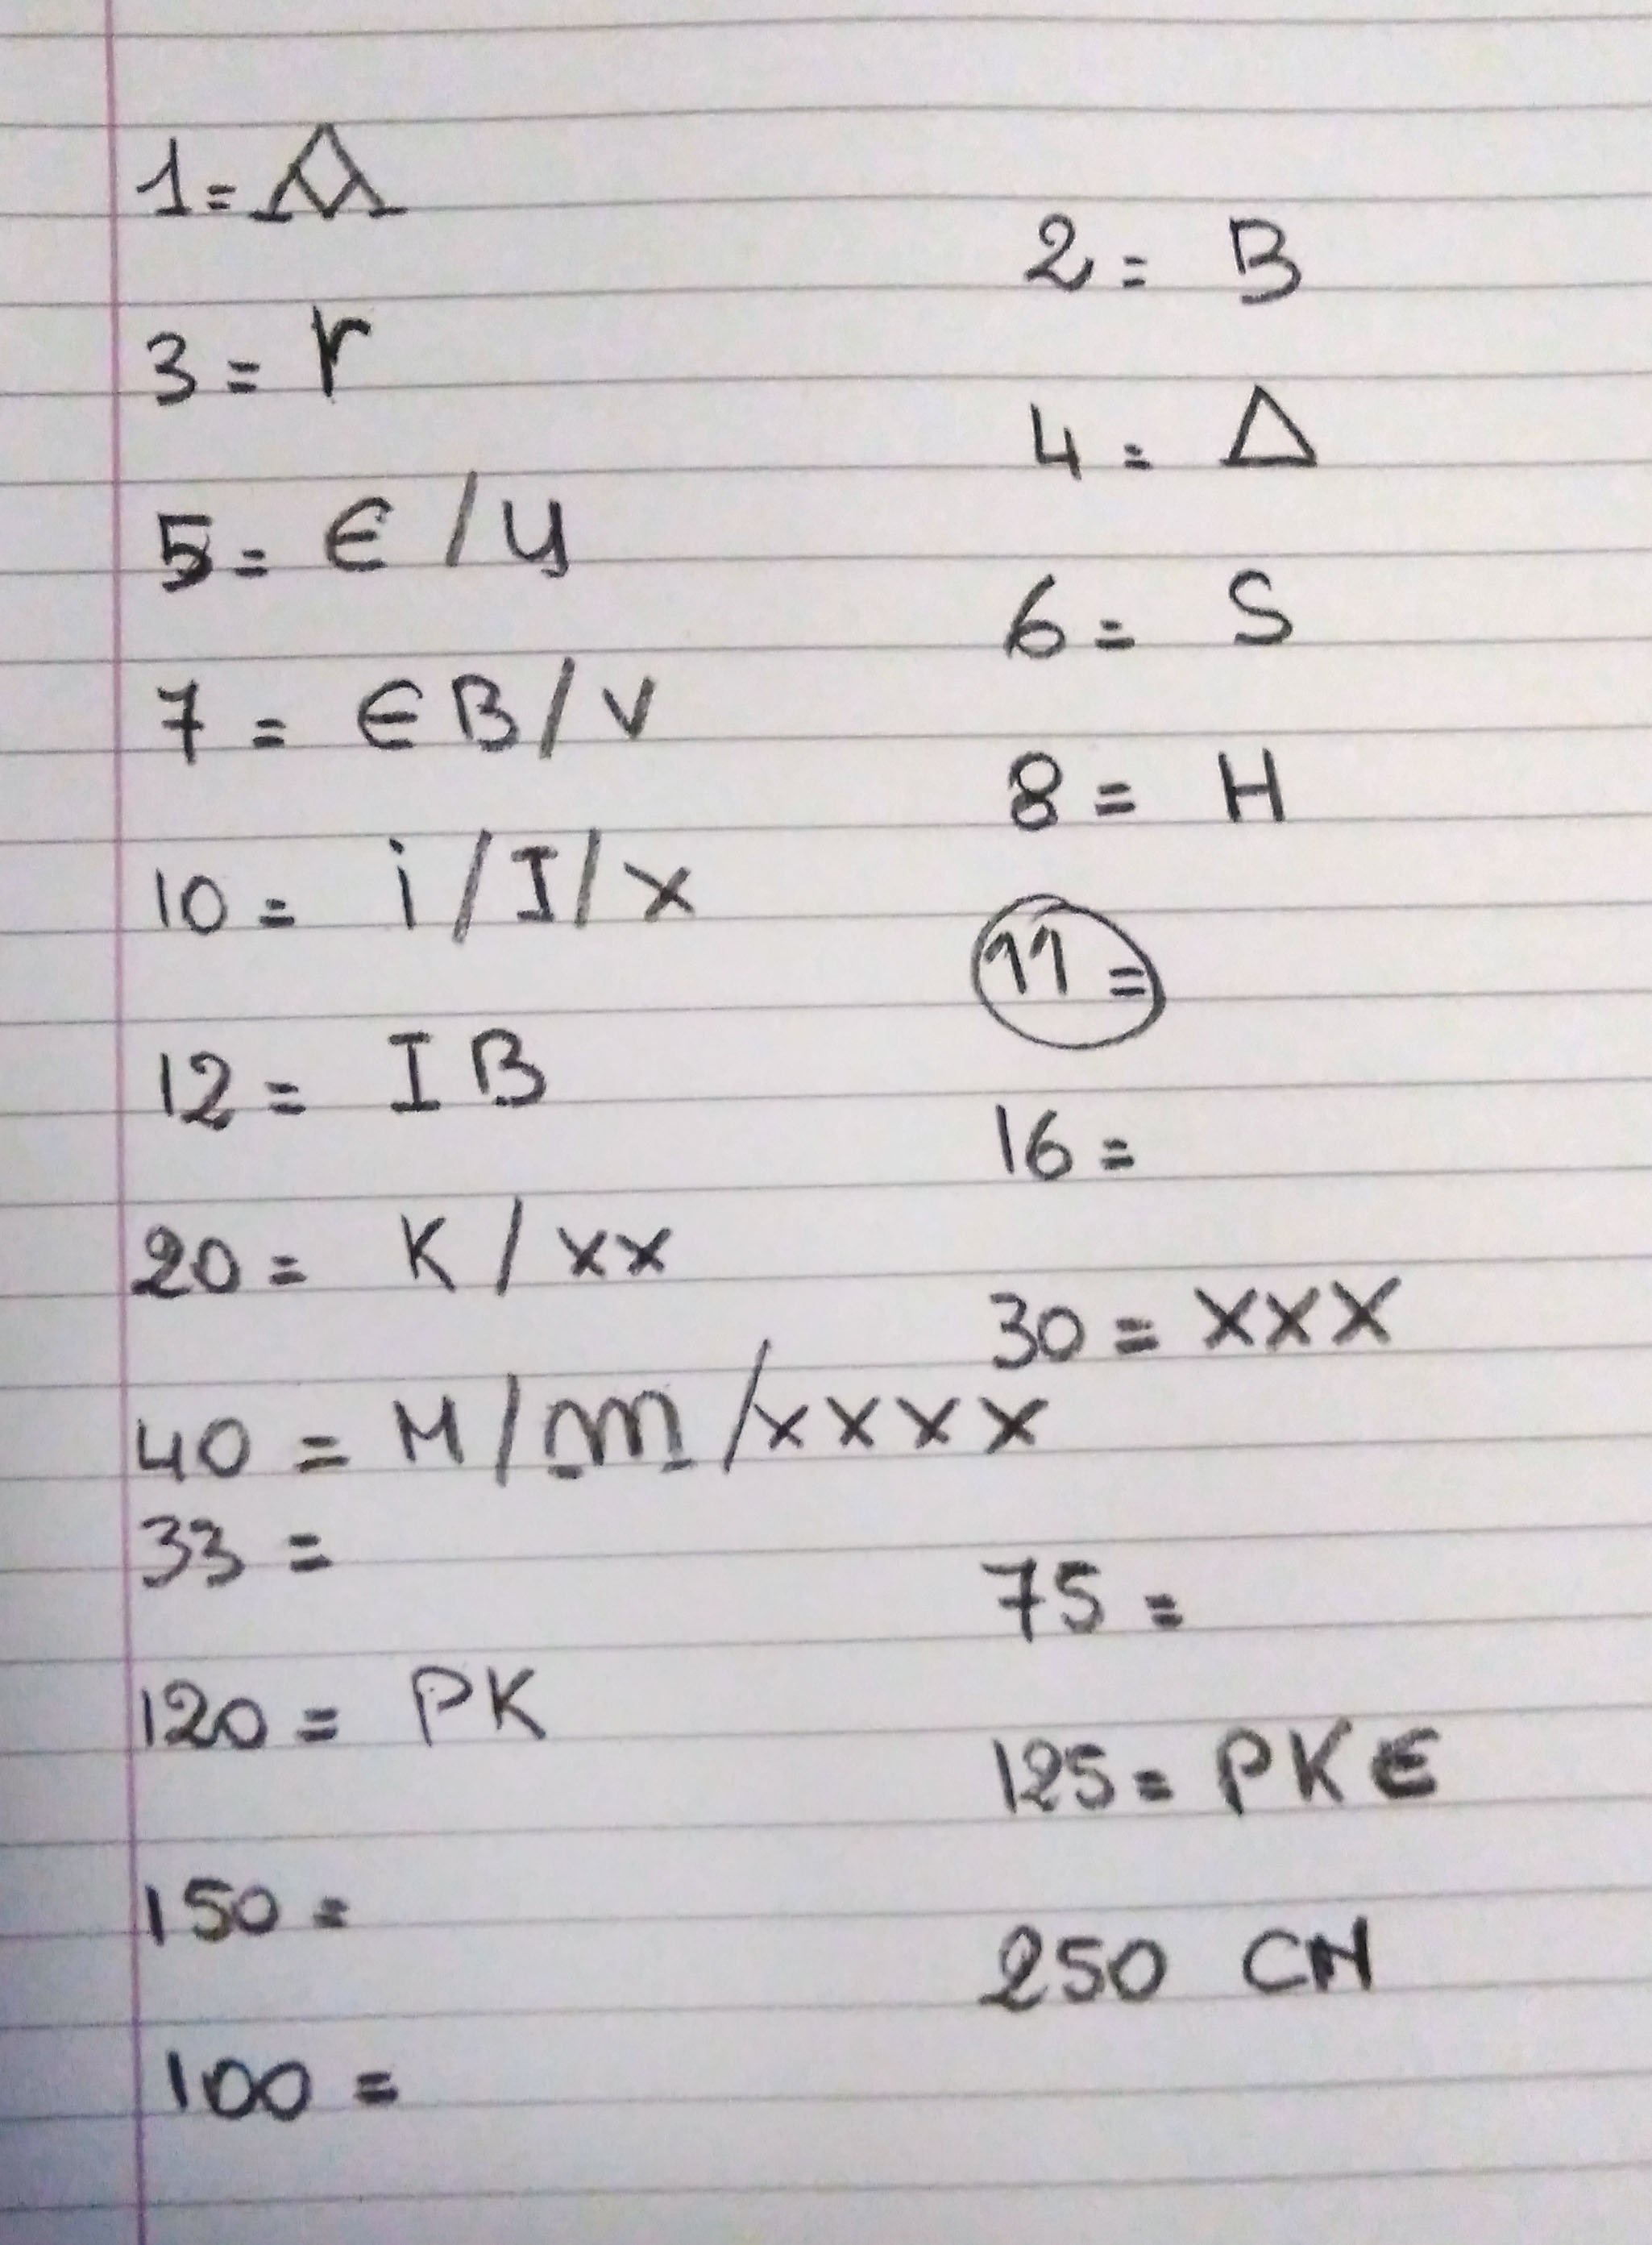 1 = A
2 = B
3 = r
4 = Δ
5 = ϵ / y
6 = S
7 = ϵB / V
8 = H
10 = i / I / x
11 =
12 = IB
16 =
20 = K / xx
30 = xxx
40 = M / m / xxxx
33 =
75 =
120 = PK
125 = PKϵ
150 =
250 CN
100 =